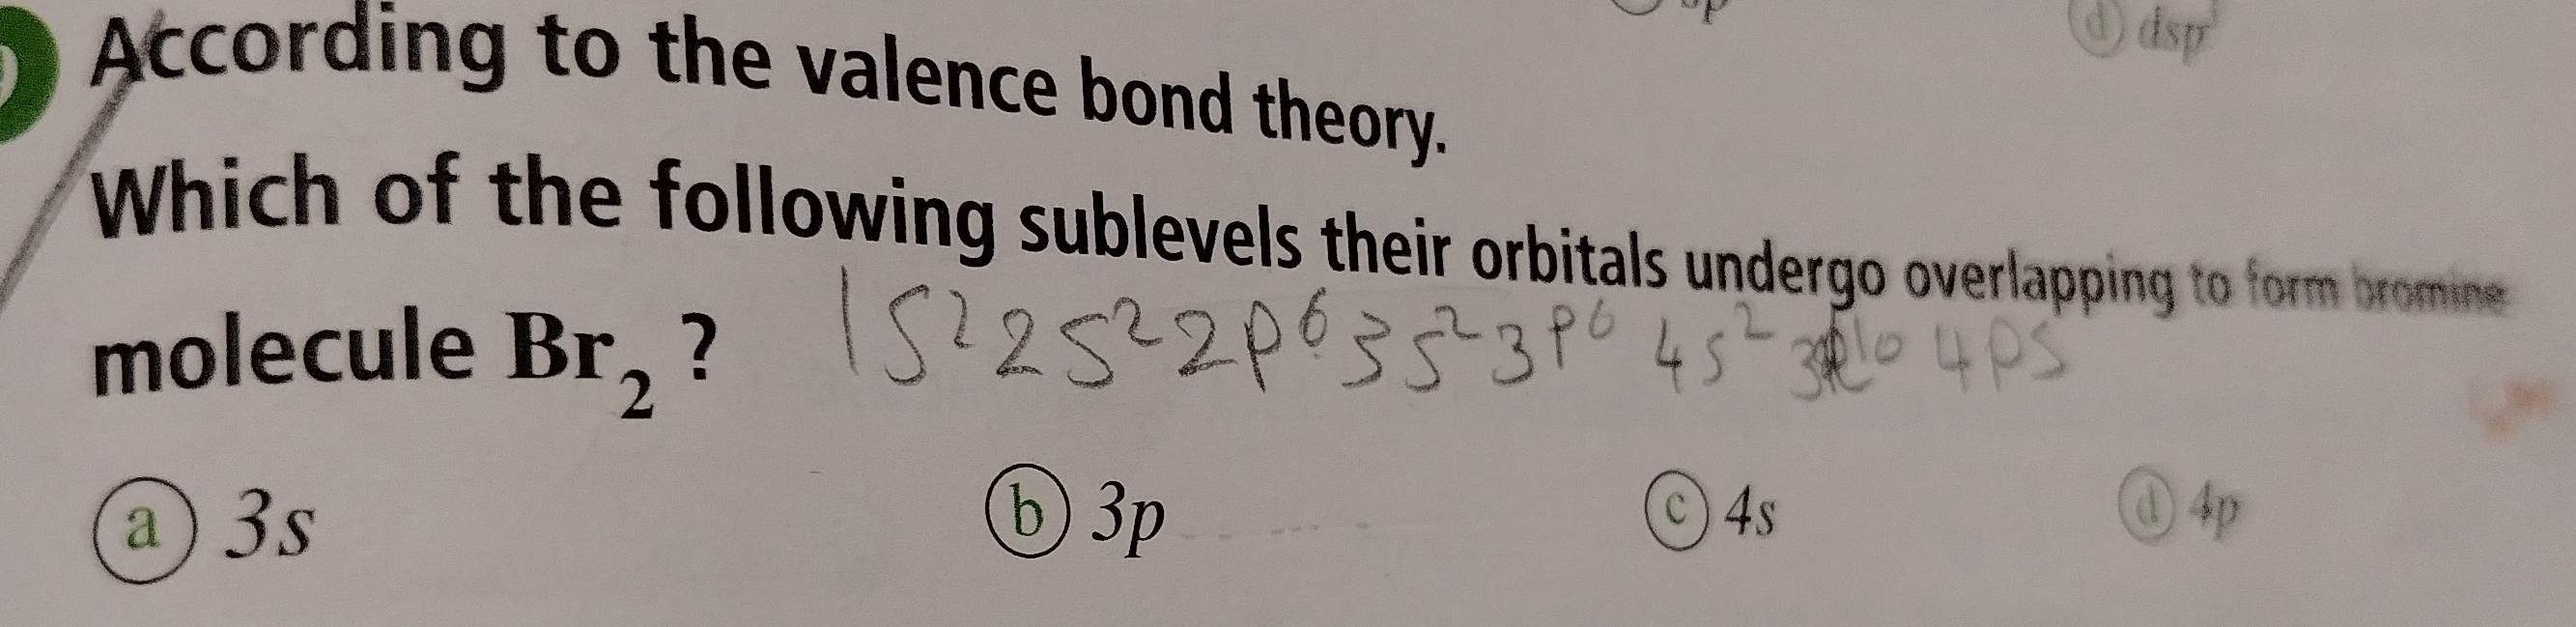 d dsp³
According to the valence bond theory.
Which of the following sublevels their orbitals undergo overlapping to form bromine
molecule Br₂ ? 1S² 2S² 2P⁶ 3S² 3P⁶ 4S² 3d10 4P5
a 3s b 3p c 4s d 4p